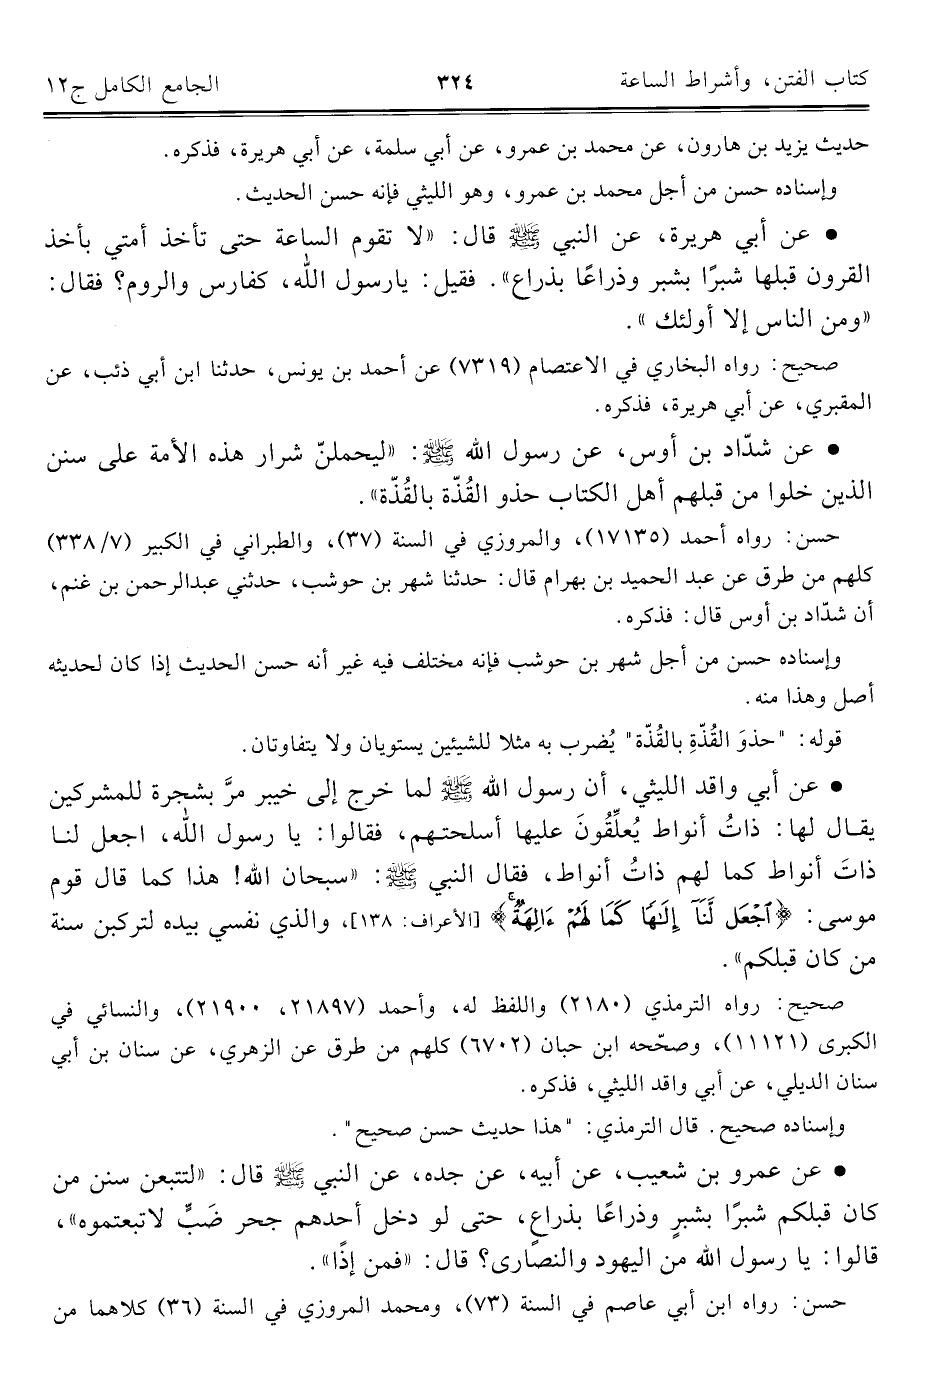 كتاب الفتن، وأشراط الساعة ٣٢٤ الجامع الكامل ج١٢
حديث يزيد بن هارون، عن محمد بن عمرو، عن أبي سلمة، عن أبي هريرة، فذكره.
وإسناده حسن من أجل محمد بن عمرو، وهو الليثي فإنه حسن الحديث.
● عن أبي هريرة، عن النبي ﷺ قال: «لا تقوم الساعة حتى تأخذ أمتي بأخذ
القرون قبلها شبرًا بشبر وذراعًا بذراع». فقيل: يارسول الله، كفارس والروم؟ فقال:
«ومن الناس إلا أولئك».
صحيح: رواه البخاري في الاعتصام (٧٣١٩) عن أحمد بن يونس، حدثنا ابن أبي ذئب، عن
المقبري، عن أبي هريرة، فذكره.
● عن شدّاد بن أوس، عن رسول الله ﷺ: «ليحملنّ شرار هذه الأمة على سنن
الذين خلوا من قبلهم أهل الكتاب حذو القُذّة بالقُذّة».
حسن: رواه أحمد (١٧١٣٥)، والمروزي في السنة (٣٧)، والطبراني في الكبير (٣٣٨/٧)
كلهم من طرق عن عبد الحميد بن بهرام قال: حدثنا شهر بن حوشب، حدثني عبدالرحمن بن غنم،
أن شدّاد بن أوس قال: فذكره.
وإسناده حسن من أجل شهر بن حوشب فإنه مختلف فيه غير أنه حسن الحديث إذا كان لحديثه
أصل وهذا منه.
قوله: "حذوَ القُذّةِ بالقُذّة" يُضرب به مثلا للشيئين يستويان ولا يتفاوتان.
● عن أبي واقد الليثي، أن رسول الله ﷺ لما خرج إلى خيبر مرَّ بشجرة للمشركين
يقال لها: ذاتُ أنواط يُعلِّقُونَ عليها أسلحتهم، فقالوا: يا رسول الله، اجعل لنا
ذاتَ أنواط كما لهم ذاتُ أنواط، فقال النبي ﷺ: «سبحان الله! هذا كما قال قوم
موسى: ﴿ٱجۡعَل لَّنَآ إِلَٰهٗا كَمَا لَهُمۡ ءَالِهَةٞۚ﴾ [الأعراف: ١٣٨]، والذي نفسي بيده لتركبن سنة
من كان قبلكم».
صحيح: رواه الترمذي (٢١٨٠) واللفظ له، وأحمد (٢١٨٩٧، ٢١٩٠٠)، والنسائي في
الكبرى (١١١٢١)، وصحّحه ابن حبان (٦٧٠٢) كلهم من طرق عن الزهري، عن سنان بن أبي
سنان الديلي، عن أبي واقد الليثي، فذكره.
وإسناده صحيح. قال الترمذي: "هذا حديث حسن صحيح".
● عن عمرو بن شعيب، عن أبيه، عن جده، عن النبي ﷺ قال: «لتتبعن سنن من
كان قبلكم شبرًا بشبرٍ وذراعًا بذراعٍ، حتى لو دخل أحدهم جحر ضَبٍّ لاتبعتموه»،
قالوا: يا رسول الله من اليهود والنصارى؟ قال: «فمن إذًا».
حسن: رواه ابن أبي عاصم في السنة (٧٣)، ومحمد المروزي في السنة (٣٦) كلاهما من